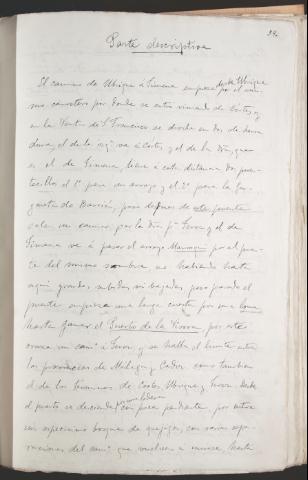 Parte descriptiva
El camino de Ubrique á Jimena empieza desde Ubrique por el mis-
mo carretero por donde se está viniendo de Cortes, y
en la Venta de S. Francisco se divide en dos de herra
dura, el de la izqª va á Cortes y el de la dra, que
es el de Jimena, tiene á corta distancia dos puen-
tecillos el 1º para un arroyo y el 2º para la
Garganta de Barrida, pero despues de este puente
sale un camino por la dra pª Jerez y el de
Jimena va á pasar el arroyo por el puen-
te del mismo nombre no habiendo hasta
aqui grandes subidas ni bajadas, pero pasado el
puente empieza una larga cuesta por una loma
hasta ganar el Puerto de la Víbora, por este
cruza un camº á Jerez, y se halla el limite entre
las provincias de Málaga y Cadiz como tambien
el de los terminos de Cortes, Ubrique y Jerez. Desde
el puerto se desciende por una ladera con poca pendiente, por entre
un espesisimo bosque de quejigos, con varias sepa-
raciones del camº que vuelven á unirse hasta